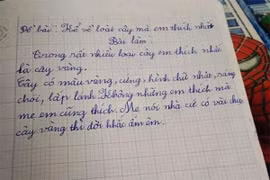 Đề bài: Kể về loài cây mà em thích nhất
Bài làm
Trong rất nhiều loài cây em thích nhất
là cây vàng.
Cây có màu vàng, cứng, hình chữ nhật, sáng
chói, lấp lánh. Không những em thích mà
mẹ em cũng thích. Mẹ nói nhà cứ có vài chục
cây vàng thì đời khắc ấm êm.